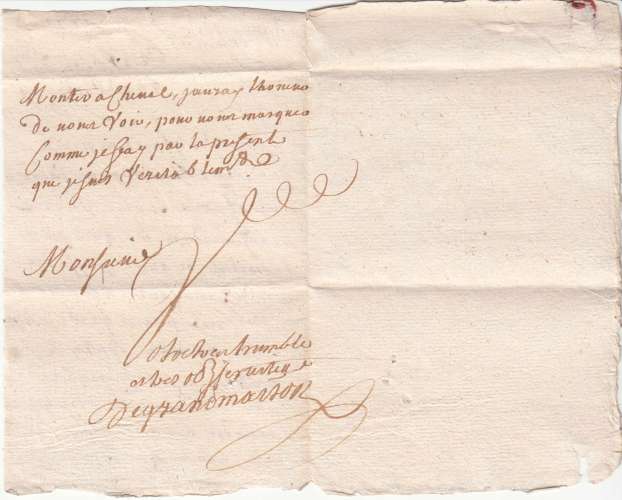 Monter a Cheval, jauray lhonneur
de vous voir, pour vous marquer
Comme je fay par la presente
que je suis veritablem.t
Monsieur
Votre tres humble
et tres obs. serviteur
Degrandmaison